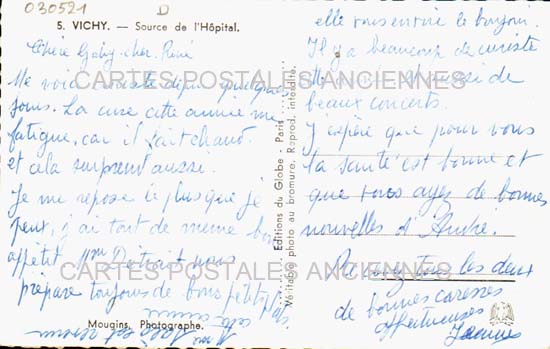 030521 D
5. VICHY. — Source de l'Hôpital.
Chère Gaby - cher René
Me voici curiste depuis quelques
jours. La cure cette année me
fatigue, car il fait chaud
et cela surprend aussi.
Je me repose le plus que je
peux, j'ai tout de même bon
appétit Mme nous
prépare toujours de bons petits plats
Mme est venue
Mougins, Photographe.
Editions du Globe - Paris
Véritable photo au bromure. Reprod. interdite.
elle vous envoie le bonjour.
Il y a beaucoup de curiste
aussi de
beaux concerts.
J'espère que pour vous
la santé est bonne et
que vous ayez de bonnes
nouvelles d'André.
tous les deux
de bonnes caresses
Affectueuses
CARTES POSTALES ANCIENNES
CARTES POSTALES ANCIENNES